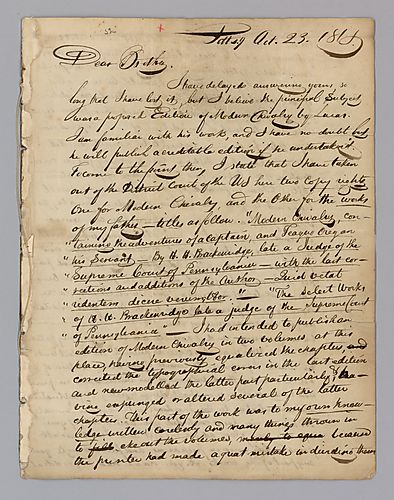 Oct. 23. 181
Dear Brother,
I have delayed answering yours so
long that I have lost it, but I believe the principal subject
was a proposed Edition of Modern Chivalry by Lucas.
I am familiar with his work, and I have no doubt but
he will publish a creditable edition if he undertakes it.
to come to the point then, I state that I have taken
out of the District Court of the US here two copy rights
One for Modern Chivalry, and the Other for the works
of my father — titles as follow. "Modern Chivalry, con-
"taining the adventures of a Captain, and Teague Oregan
"his Servant — By H. H. Brackenridge, late a Judge of the
"Supreme Court of Pennsylvania — with the last cor-
"rections and additions of the Author — Quid vetat
"ridentem dicere verum &c &c. — "The Select Works
"of H. H. Brackenridge late a judge of the Supreme Court
"of Pennsylvania" — I had intended to publish an
edition of Modern Chivalry in two volumes at this
place, having previously equalized the chapters, and
corrected the typographical errors in the last edition
and new modelled the latter part particularly, & ha-
ving expunged or altered several of the latter
chapters. This part of the work was to my own know-
ledge written carelessly and many things thrown in
to eke out the volumes, because
the printer had made a great mistake in dividing them